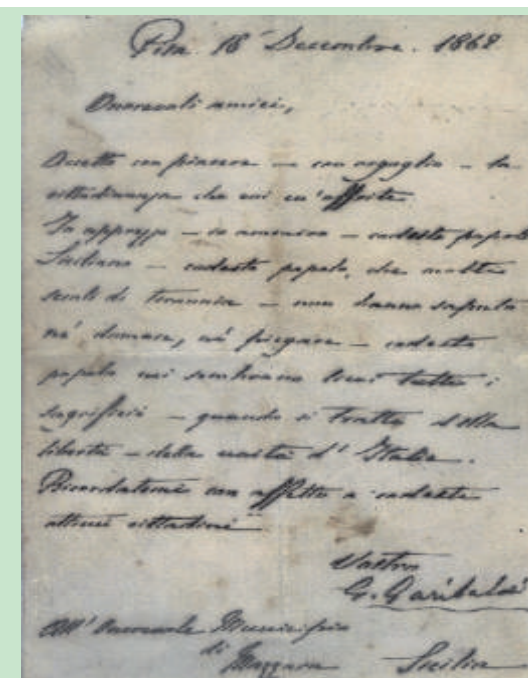 Pisa. 18 Decembre. 1862
Onorevoli amici,
Accetto con piacere — con orgoglio — la
cittadinanza che mi offrite
Io apprezzo — io ammiro — codesto popolo
Siciliano — codesto popolo, che molti
secoli di tirannia — non hanno saputo
nè domare, nè piegare — codesto
popolo cui sembrano lievi tutti i
sagrifici — quando si tratta della
libertà — della unità d'Italia.
Ricordatemi con affetto a codesti
ottimi cittadini
Vostro
G. Garibaldi
All' Onorevole Municipio
di Mazzara Sicilia